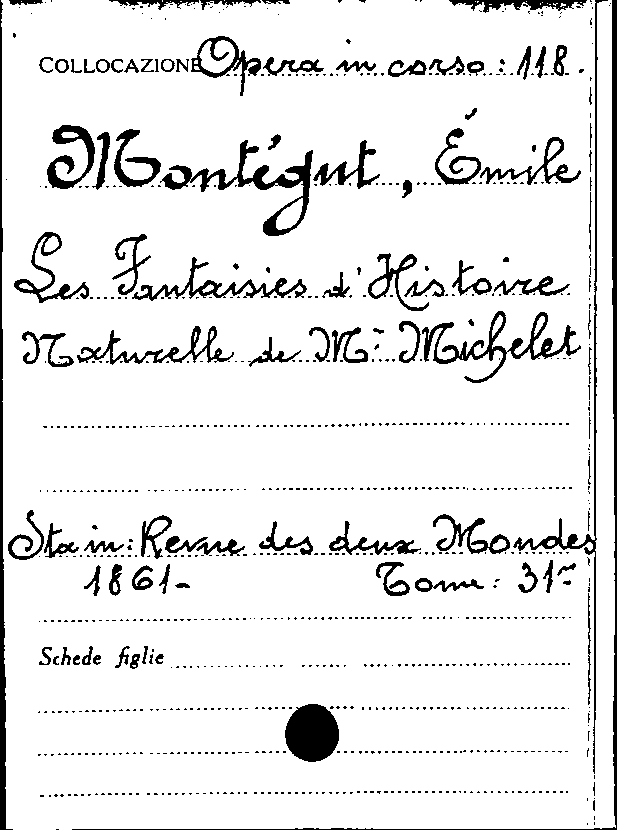 COLLOCAZIONE Opera in corso: 118.
Montégut, Émile
Les Fantaisies d'Histoire
Naturelle de Mr Michelet
Sta in: Revue des deux Mondes
1861- Tome: 31me
Schede figlie